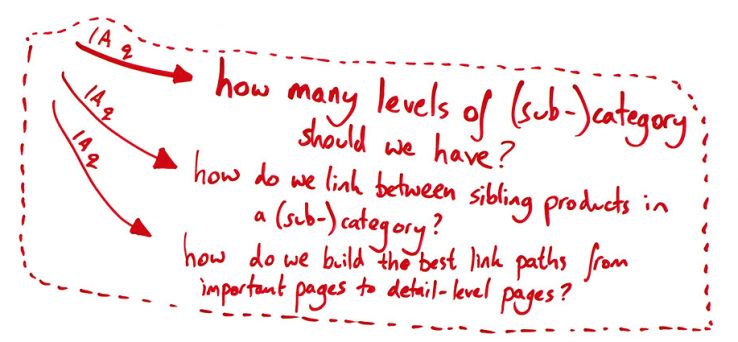 IA q
how many levels of (sub-)category
should we have?
IA q
how do we link between sibling products in
a (sub-)category?
IA q
how do we build the best link paths from
important pages to detail-level pages?